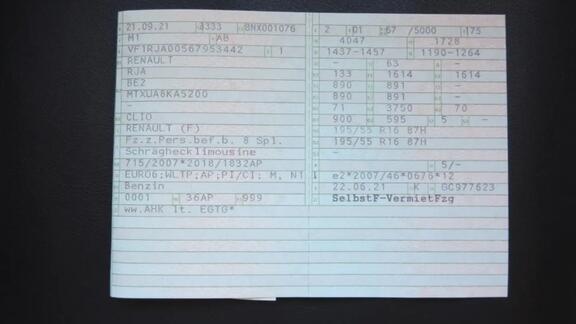 21.09.21 4333 8NX001076
M1 AB
VF1RJA00567953442 1
RENAULT
RJA
BE2
MTXUA6KA5200
-
CLIO
RENAULT (F)
Fz.z.Pers.bef.b. 8 Spl.
Schräghecklimousine
715/2007*2018/1832AP
EURO6;WLTP;AP;PI/CI; M, N1 I
Benzin
0001 36AP 999
ww.AHK lt. EGTG*
2 01 67 /5000 175
4047 1728
1437-1457 1190-1264
- 63 -
133 1614 1614
890 891 -
890 891 -
71 3750 70
900 595 5 -
195/55 R16 87H
195/55 R16 87H
-
5/-
e2*2007/46*0676*12
22.06.21 K GC977623
SelbstF-VermietFzg